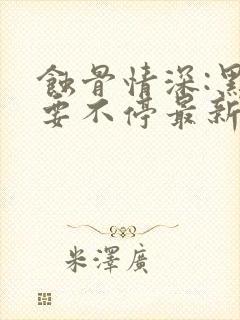 蝕骨情深:黑
要不停最新
米澤廣